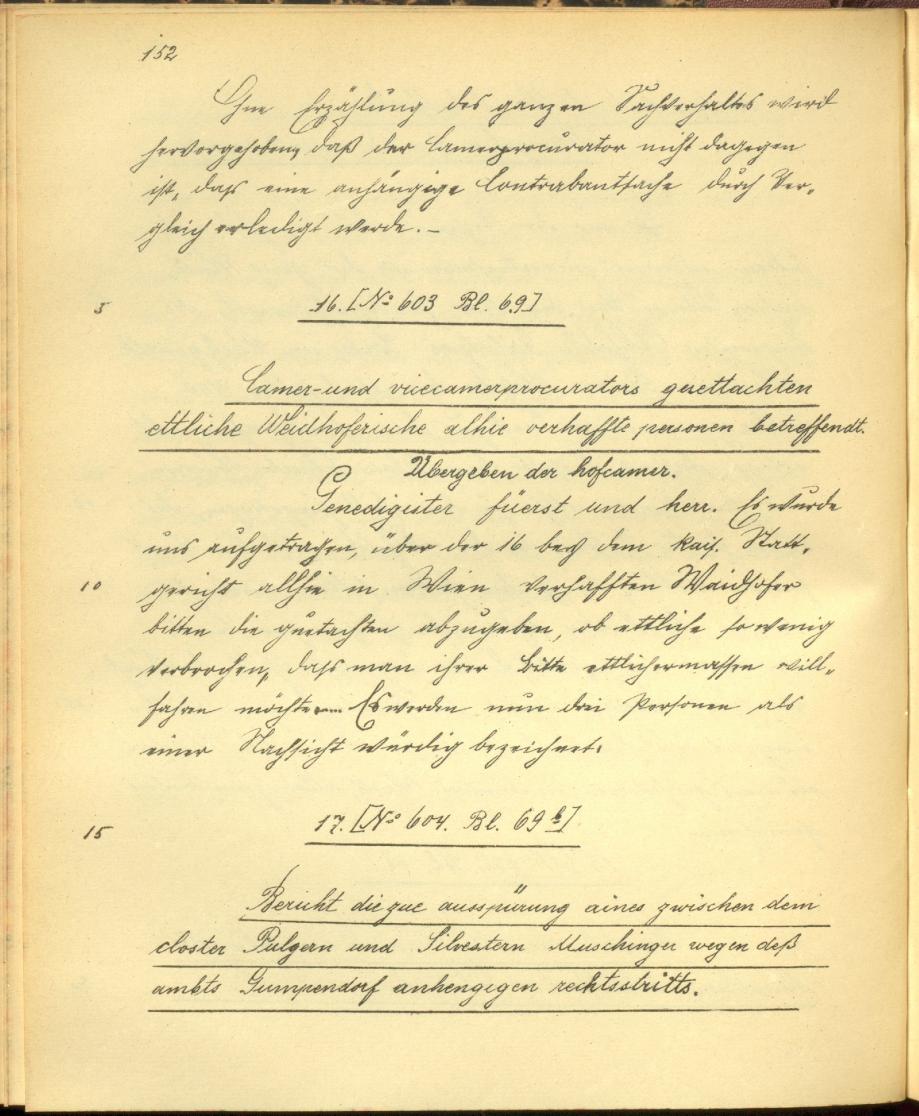 152
Ohne Erzählung des ganzen Sachverhaltes wird
hervorgehoben, daß der Camerprocurator nicht dagegen
ist, dass eine anhängige Contrabantsache durch Ver-
gleich erledigt werde. –
5 16. [No 603 Bl. 69]
Camer- und vicecamerprocurators guettachten
ettliche Weidhoferische alhie verhaffte personen betreffendt.
Übergeben der hofcamer.
Genedigister füerst und herr. Es wurde
uns aufgetragen, über der 16 bey dem kais. Statt-
10 gericht allhie in Wien verhafften Waidhofer
bitten die guetachten abzugeben, ob ettliche so wenig
verbrochen, dass man ihrer bitte ettlichermassen will-
fahren möchte. — Es werden nun drei Personen als
einer Nachsicht würdig bezeichnet.
15 17. [No 604. Bl. 69 b]
Bericht die zue ausspürung aines zwischen dem
closter Pulgern und Silvestern Muschinger wegen deß
ambts Gumpendorf anhengigen rechtsstritts.